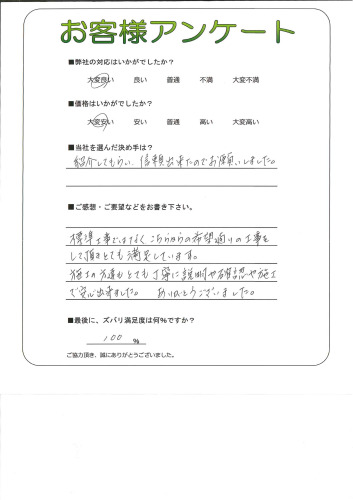 お客様アンケート
■弊社の対応はいかがでしたか？
大変良い　良い　普通　不満　大変不満
■価格はいかがでしたか？
大変安い　安い　普通　高い　大変高い
■当社を選んだ決め手は？
紹介してもらい、信頼出来たのでお願いしました。
■ご感想・ご要望などをお書き下さい。
標準工事ではなく、こちらからの希望通りの工事を
して頂きとても満足しています。
施工の方達もとても丁寧に説明や確認や施工
で安心出来ました。ありがとうございました。
■最後に、ズバリ満足度は何%ですか？
100 %
ご協力頂き、誠にありがとうございました。